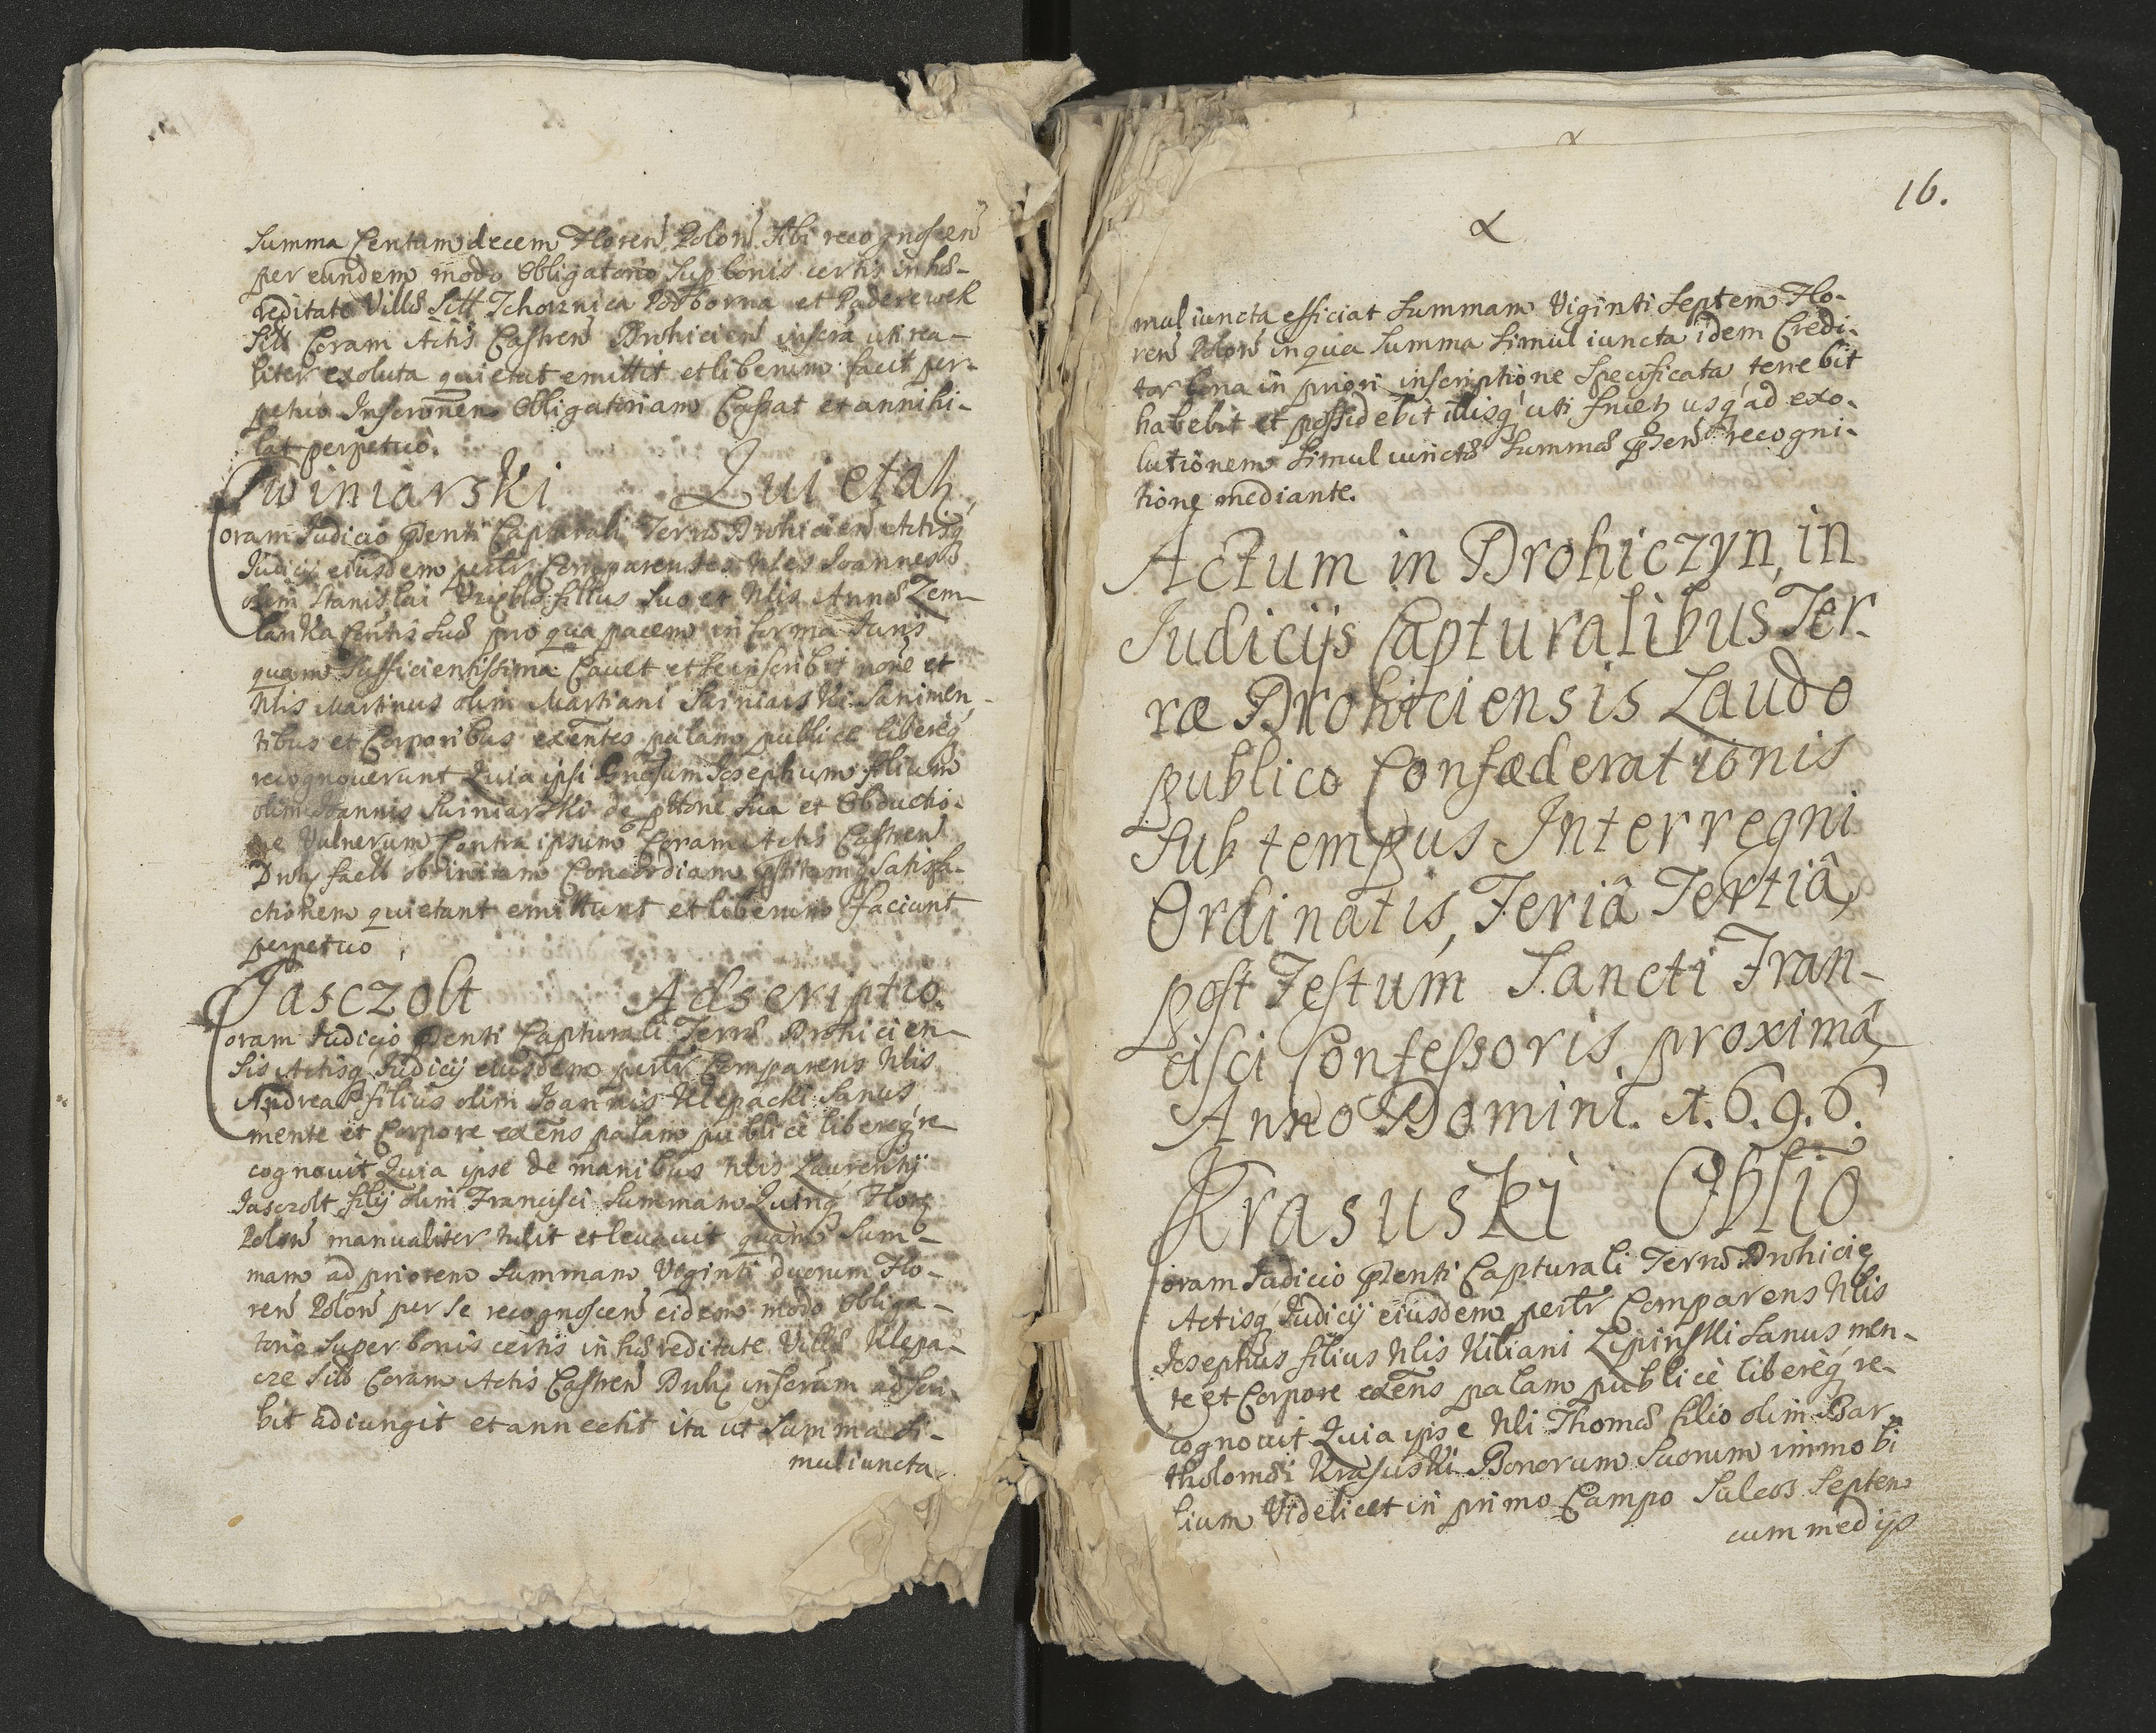 Summa Centum decem Floren̄ Polon̄ Sibi recognoscen̄
per eundem modo Obligatorio Sup bonis certis in hæ-
reditate Villæ Sitt Tchorznica Podborna et Paderewek
Sitt Coram Actis Castren̄ Drohicien̄ inscrā uti rea-
liter exoluta quietat emittit et liberum facit per-
petuo Inscrōnem Obligatoriam Cassat et annihi-
lat perpetuò.
Swiniarski Quietaō
Coram Judicio Pn̄ti Capturali Terræ Drohicien̄ Actisq́
Judicij eiusdem psltr Comparentes Nles Joannes
olim Stanislai filius Suo et Nlis Annæ Zem-
lanka Cōntis Suæ pro qua pacem in forma Juris
quam Sufficientissima Cavet et Se inscribit noīe et
Nlis Martinus olim Martiani Swiniarski Sani men-
tibus et Corporibus exēntes palam publice libereq́
recognoverunt Quia ipsi Josephum filium
olim Joannis Swiniarski de pttōne Sua et Obductio-
ne Vulnerum Contra ipsum Coram Actis Castren̄
Droh factt ob initam Concordiam pstitamq́ Satisfa-
ctionem quietant emittunt et liberum faciunt
perpetuo
Jasczolt Adscriptio.
Coram Judicio Pn̄ti Capturali Terræ Drohicien-
sis Actisq́ Judicij eiusdem psltr Comparens Nlis
Andreas filius olim Joannis Klepacki Sanus
mente et Corpore exēns palam publicè libereq́ re-
cognovit Quia ipse de manibus Nlis Laurentij
Jasczolt filij olim Francisci Summam Quinq́ Floren̄
Polon̄ manualiter tulit et levavit quam Sum-
mam ad priorem Summam Viginti duorum Flo-
ren̄ Polon̄ per Se recognoscen̄ eidem modo Obliga-
torio Super bonis certis in hæreditate Villæ Klepa-
cze Sitt Coram Actis Castren̄ Droh inscram adscri-
bit adiungit et annectit ita ut Summa Si-
mul iuncta
16.
mul iuncta efficiat Summam Viginti Septem Flo-
ren̄ Polon̄ in qua Summa Simul iuncta idem Credi-
tor bona in priori inscriptione Specificata tenebit
habebit et possidebit illisq́ uti fruetz usq́ ad exo-
lutionem Simul iunctæ Summæ recogni-
tione mediante.
Actum in Drohiczyn, in
Judicijs Capturalibus Ter-
ræ Drohiciensis Laudo
publico Confæderationis
Sub tempus Interregni
Ordinatis, Feriâ Tertiâ,
post Festum Sancti Fran-
cisci Confessoris proximâ,
Anno Domini. 1.6.9.6.
Krasuski Oblīo
Coram Judicio Pn̄ti Capturali Terræ Drohicien̄
Actisq́ Judicij eiusdem psltr Comparens Nlis
Josephus filius Nlis Kiliani Lipinski Sanus men-
te et Corpore exēns palam publicè liberèq́ re-
cognovit Quia ipse Nli Thomæ filio olim Bar-
tholomæi Krasuski Bonorum Suorum immobi
lium Videlicet in primo Campo Sulcos Septem
cum medijs